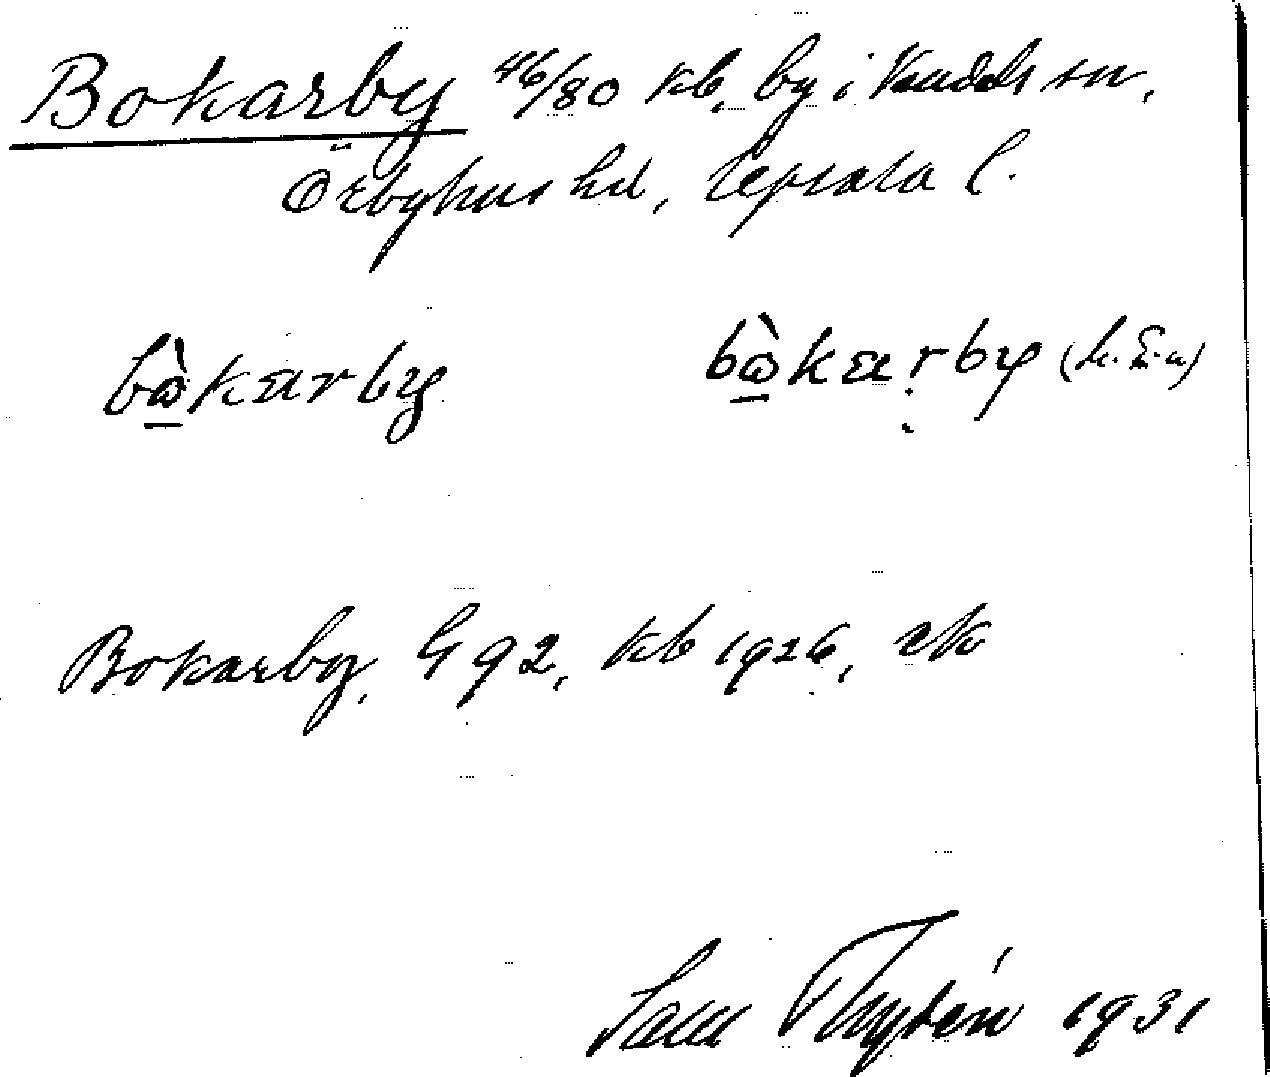 Bokarby 46/80 kb, by i Vendels sn,
Örbyhus hd, Uppsala l.
bὼkarby bὼkaṛby
Bokarby, G 92, kb 1926, rk
Sam Thydén 1931